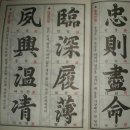 忠則盡命
臨深履薄
夙興溫凊